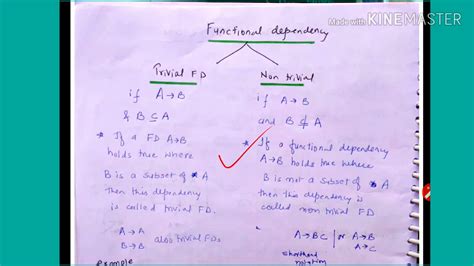 Made with KINEMASTER
Functional dependency
Trivial FD
if A→B
& B ⊆ A
* If a FD A→B
holds true where
B is a subset of A
then this dependency
is called trivial FD.
A→A
B→B
also trivial FDs.
Example
Non trivial
if A→B
and B ⊄ A
* If a functional dependency
A→B holds true where
B is not a subset of A
then this dependency is
called non trivial FD
A→BC | or A→B
A→C
shorthand
notation